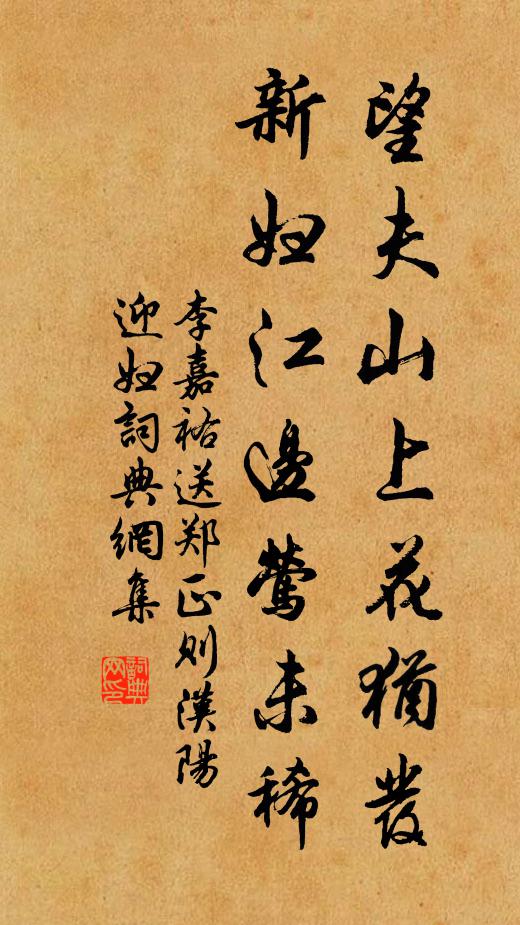 望夫山上花猶發
新妇江邊鶯未稀
李嘉祐送郑正则漢陽
迎妇詞典網集
詞典网印